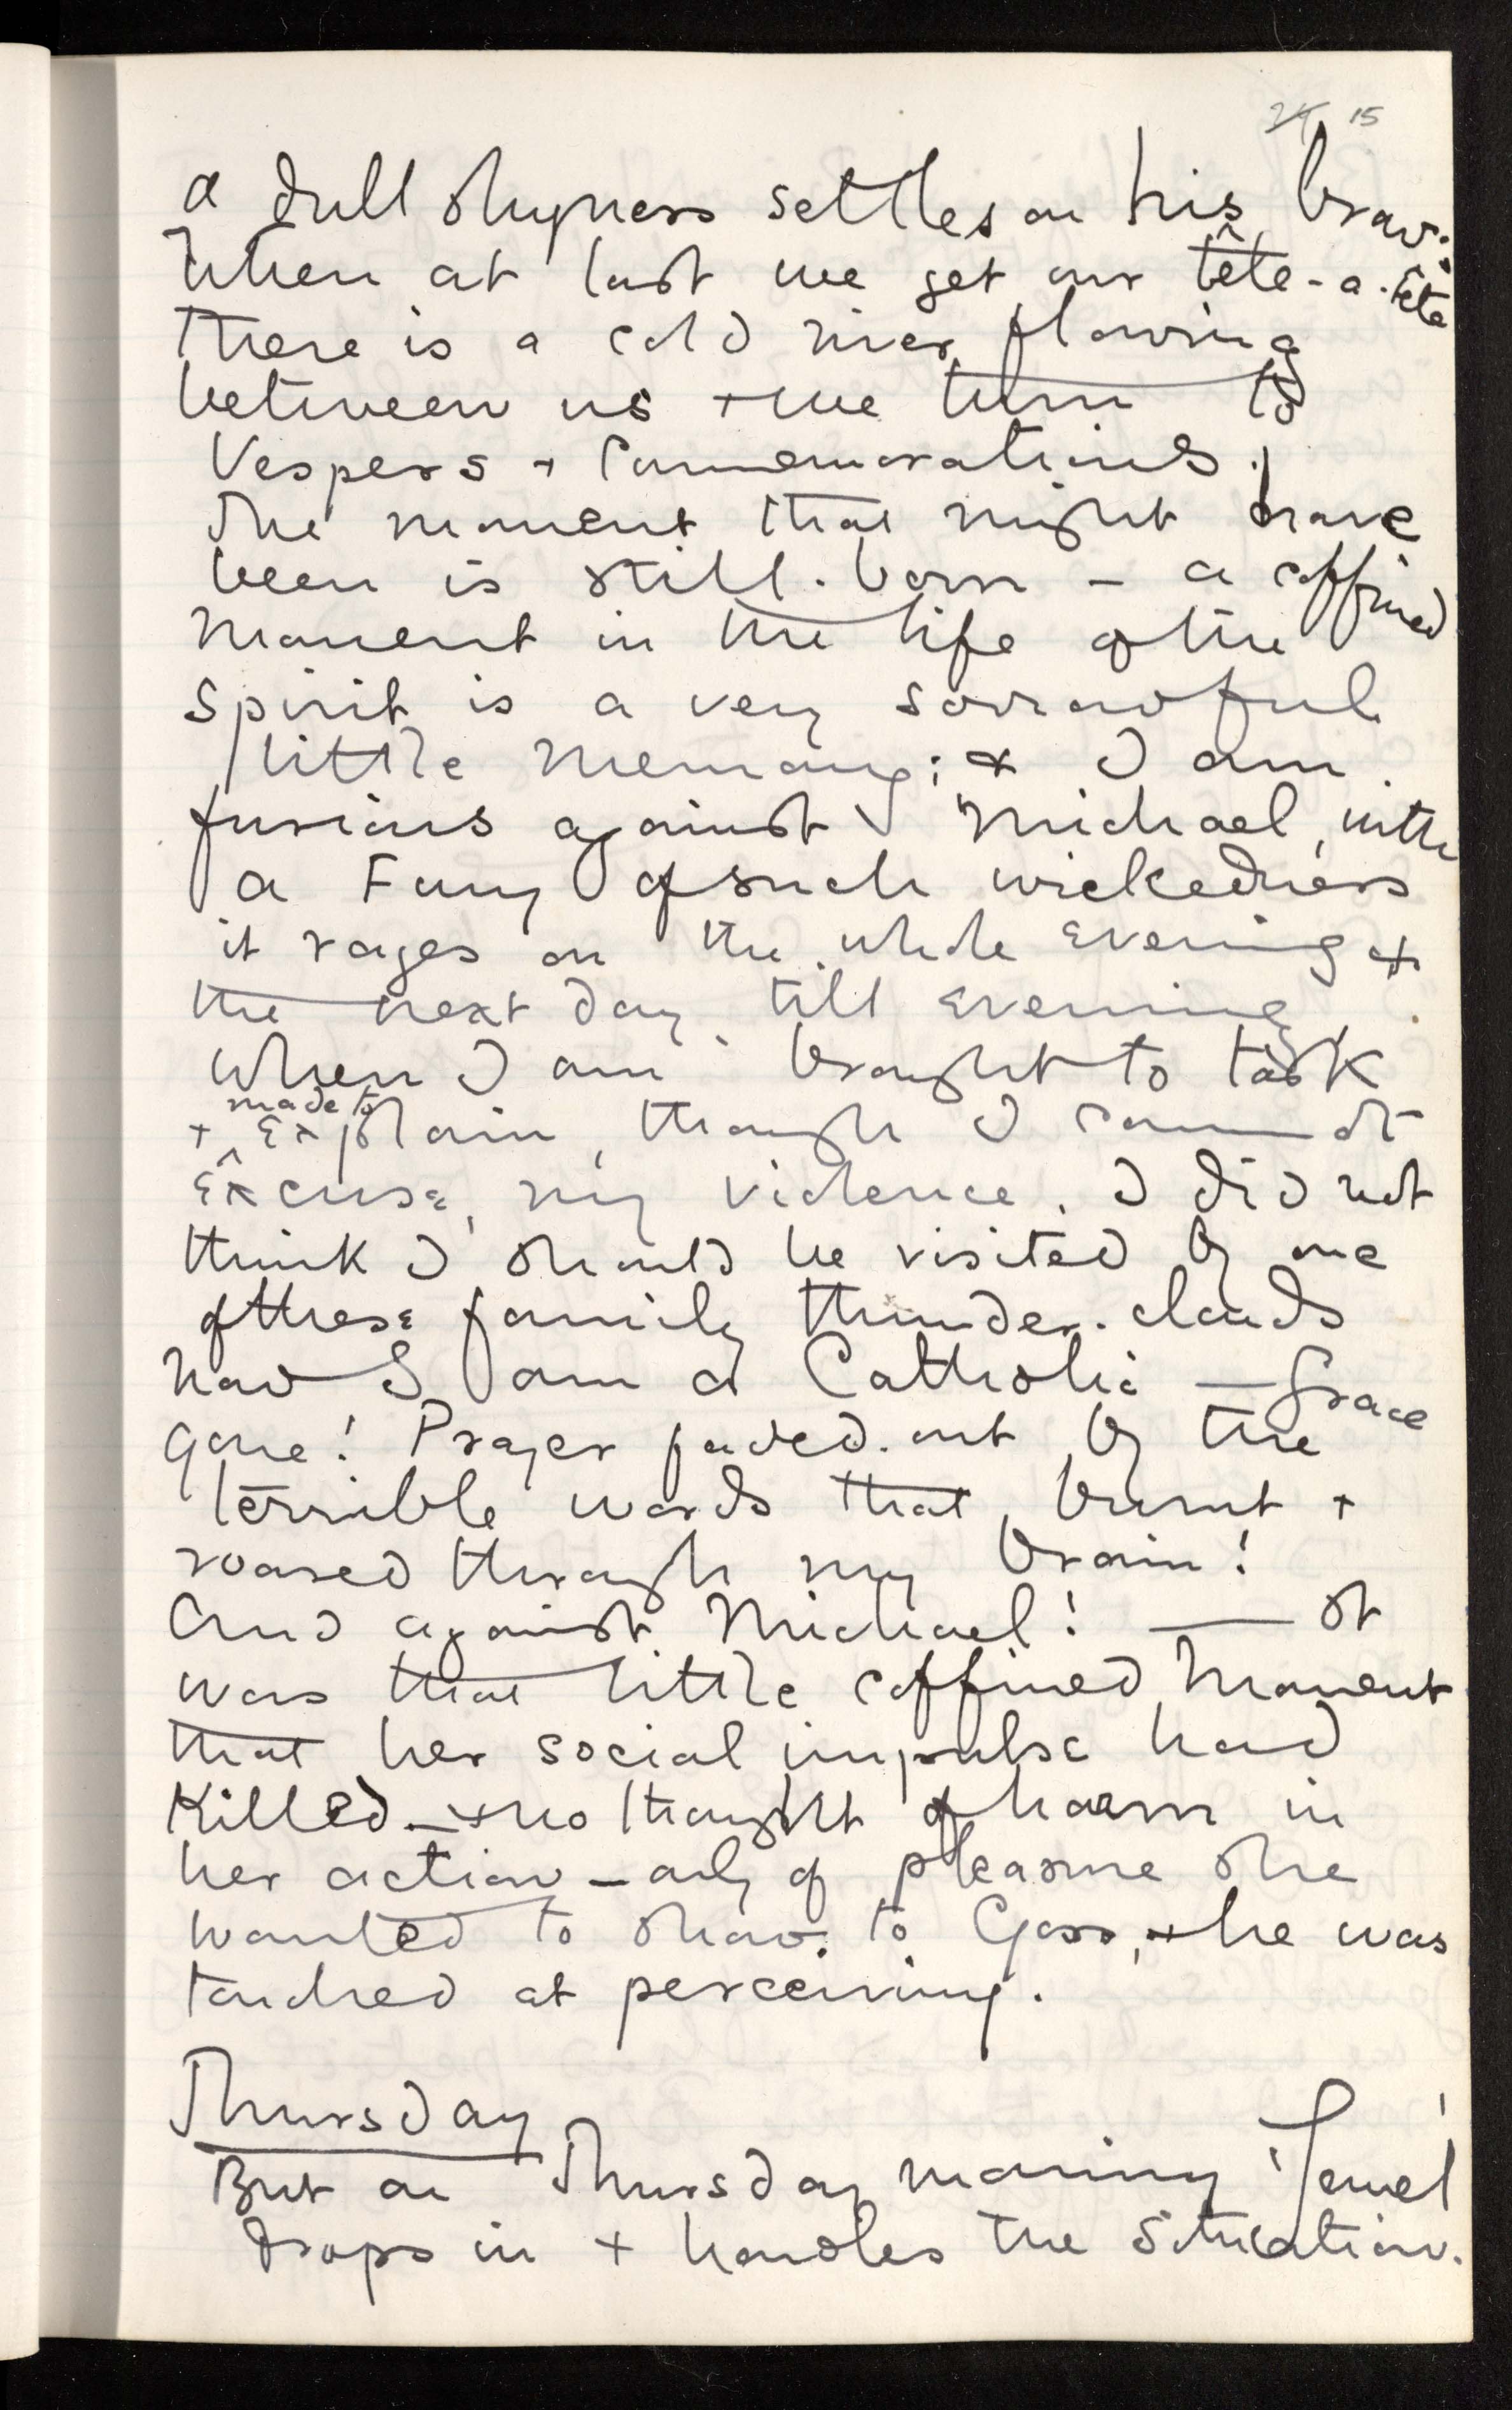 24 15
a dull shyness settles on his brow:
When at last we get our tête-a-tête
there is a cold river flowing
between us + we turn to
Vespers + Commemorations.
The moment that might have
been is still-born – a coffined
moment in the life of the
spirit is a very sorrowful
little memory; + I am
furious against Michael, with
a Fury of such wickedness
it rages on the whole evening +
the next day till evening
when I am brought to task
+ made to explain, though I cannot
excuse, my violence. I did not
think I should be visited by one
of these family thunder-clouds
now I am a Catholic — Grace
gone! Prayer faded-out by the
terrible words that burnt +
roared through my brain!
And against Michael! — It
was that little coffined moment
that her social impulse had
killed – + no thought of harm in
her action – only of pleasure she
wanted to show to Goss, + he was
touched at perceiving.
Thursday
But on Thursday morning 'Jewel'
drops in + handles the situation.